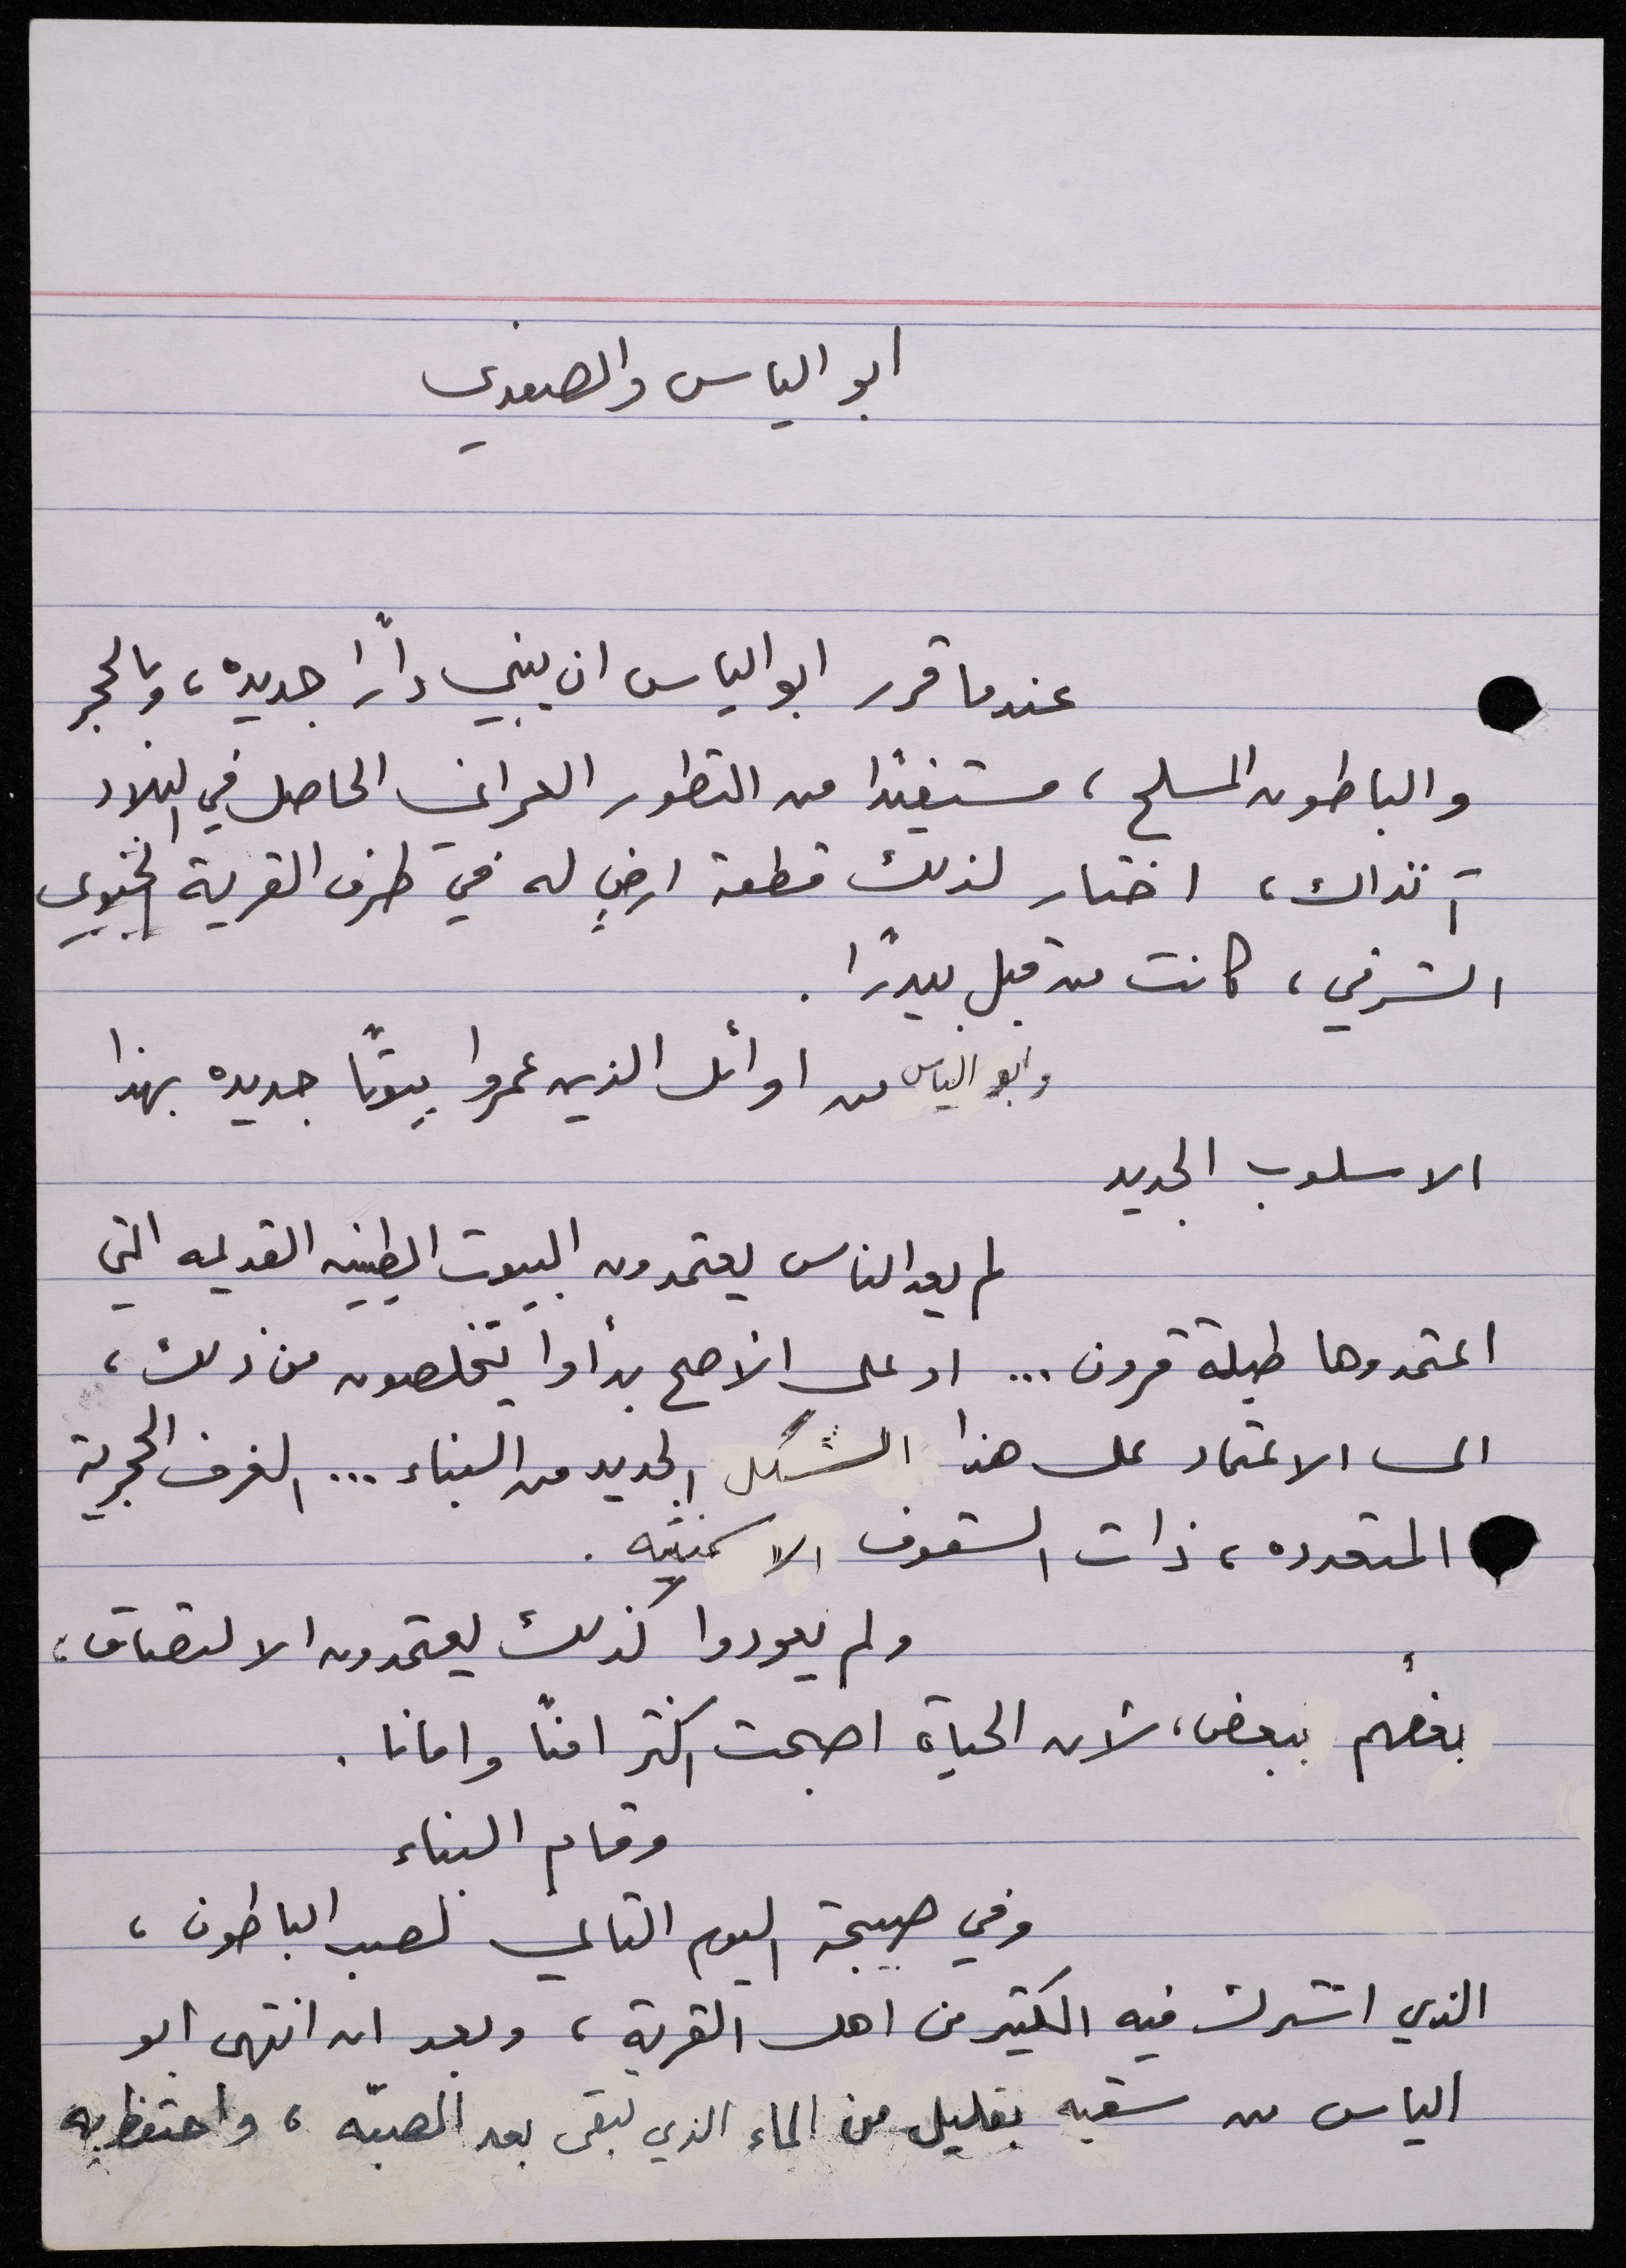 ابو الياس والصفدي
عندما قرر ابو الياس ان يبني دارًا جديده، وبالحجر
والباطون المسلح، مستفيدًا من التطور العمراني الحاصل في البلاد
آنذاك، اختار لذلك قطعة ارضٍ له في طرف القرية الجنوبي
الشرقي، كانت من قبل بيدرًا.
وابو الياس من اوائل الذين عمروا بيوتًا جديده بهذا
الاسلوب الجديد
لم يعد الناس يعتمدون البيوت الطينيه القديمه التي
اعتمدوها طيلة قرون... او على الاصح بدأوا يتخلصون من ذلك،
الى الاعتماد على هذا الشكل الجديد من البناء... الغرف الحجرية
المتعدده، ذات السقوف الاسمنتيه.
ولم يعودوا كذلك يعتمدون الالتصاق،
بعضهم ببعض، لأن الحياة اصبحت اكثر امنًا وامانا.
وقام البناء
وفي صبيحة اليوم التالي لصب الباطون،
الذي اشترك فيه الكثير من اهل القرية، وبعد ان انتهى ابو
الياس من سقيه بقليل من الماء الذي تبقى بعد الصبّه، واحتفظ به